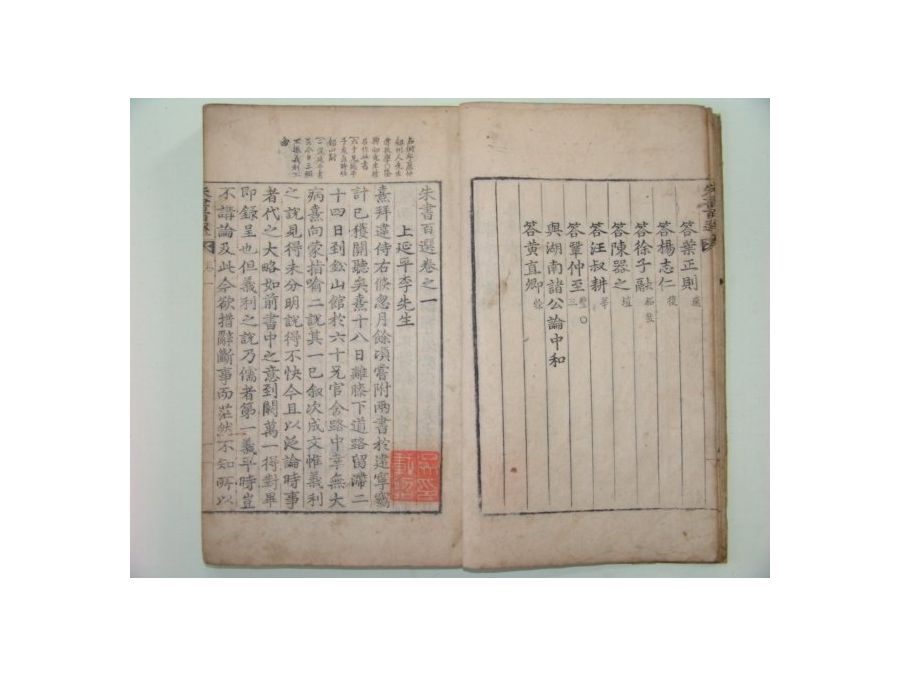 答葉正則 適
答楊志仁 復
答徐子融 昭然
答陳器之 埴
答汪叔耕 莘
答鞏仲至 豐 三
與湖南諸公論中和
答黃直卿 榦
朱書百選卷之一
上延平李先生
熹拜違侍右倏忽月餘頃嘗附兩書於建寧竊
計已獲關聽矣熹十八日離膝下道路留滯二
十四日到鉛山館於六十兄官舍路中幸無大
病熹向蒙指喻二說其一已敘次成文惟義利
之說見得未分明說得不快今且以泛論時事
者代之大略如前書中之意到闕萬一得對畢
即錄呈也但義利之說乃儒者第一義平時豈
不講論及此今欲措辭斷事而茫然不知所以
朱書百選
卷一